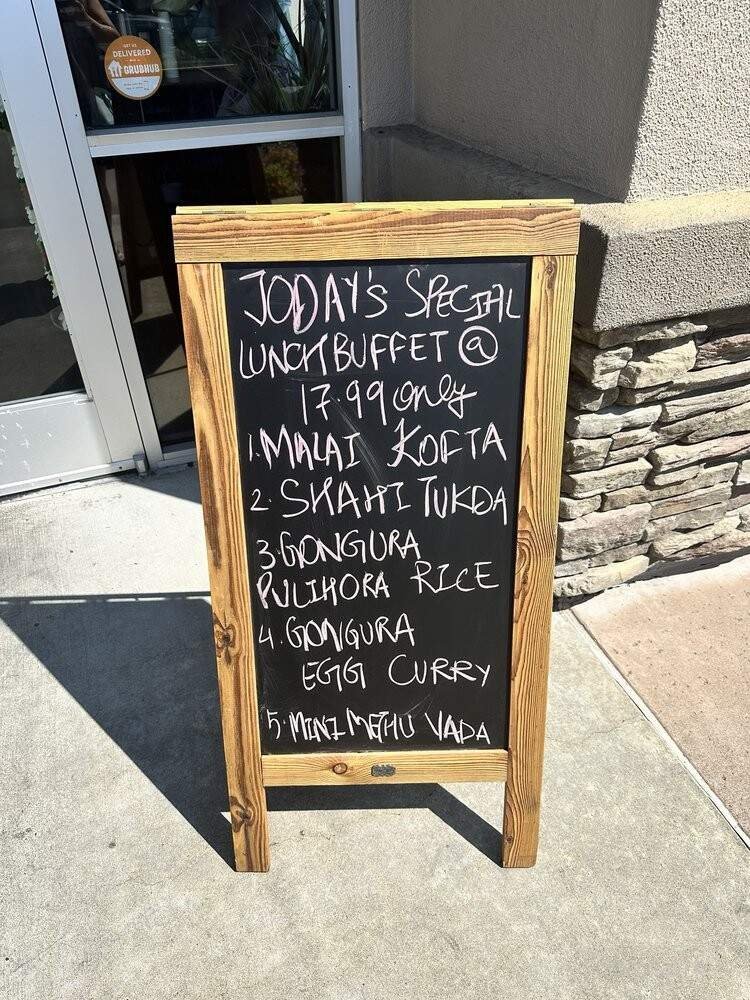 GET US
DELIVERED
GRUBHUB
TODAY'S SPECIAL
LUNCH BUFFET @
17.99 only
1. MALAI KOFTA
2. SHAHI TUKDA
3. GONGURA
PULIHORA RICE
4. GONGURA
EGG CURRY
5. MINI METHU VADA